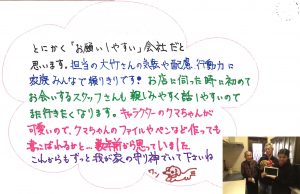 とにかく「お願いしやすい」会社だと
思います。担当の大竹さんの気配や配慮、行動力に
家族みんなで頼りきりです！お店に伺った時に初めて
お会いするスタッフさんも親しみやすく話しやすいので
また行きたくなります。キャラクターのクマちゃんが
可愛いので、クマちゃんのファイルやペンなど作っても
喜こばれるかと…数年前から思っていました
これからもずっと我が家の守り神でいて下さいね
ワン